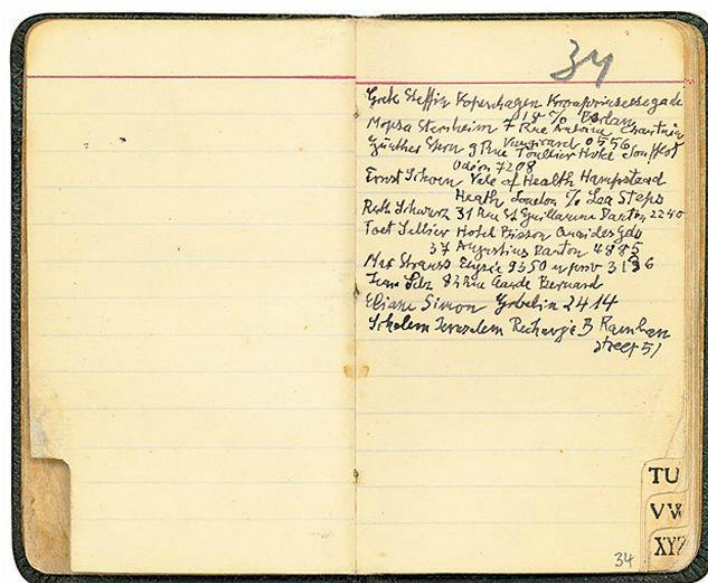 34
Grete Steffin Kopenhagen Kronprinsessegade
18 c/o
Mopsa Sternheim 7 Rue Antoine Chantin
Vaugirard 0556
Günther Stern 9 Rue Toullier Hotel Soufflot
Odéon 7208
Ernst Schoen Vale of Health Hampstead
Heath London c/o Lea Steps
Ruth Schwarz 31 Rue St Guillaume Danton 2240
Hotel Bisson Quai des Gds
37 Augustins Danton 4885
Max Strauss Elysée 9350 u priv 3196
Jean Selz 83 Rue Claude Bernard
Eliane Simon Gobelin 2414
Scholem Jerusalem Rechavja B Ramban
Street 51
TU
VW
XYZ
34